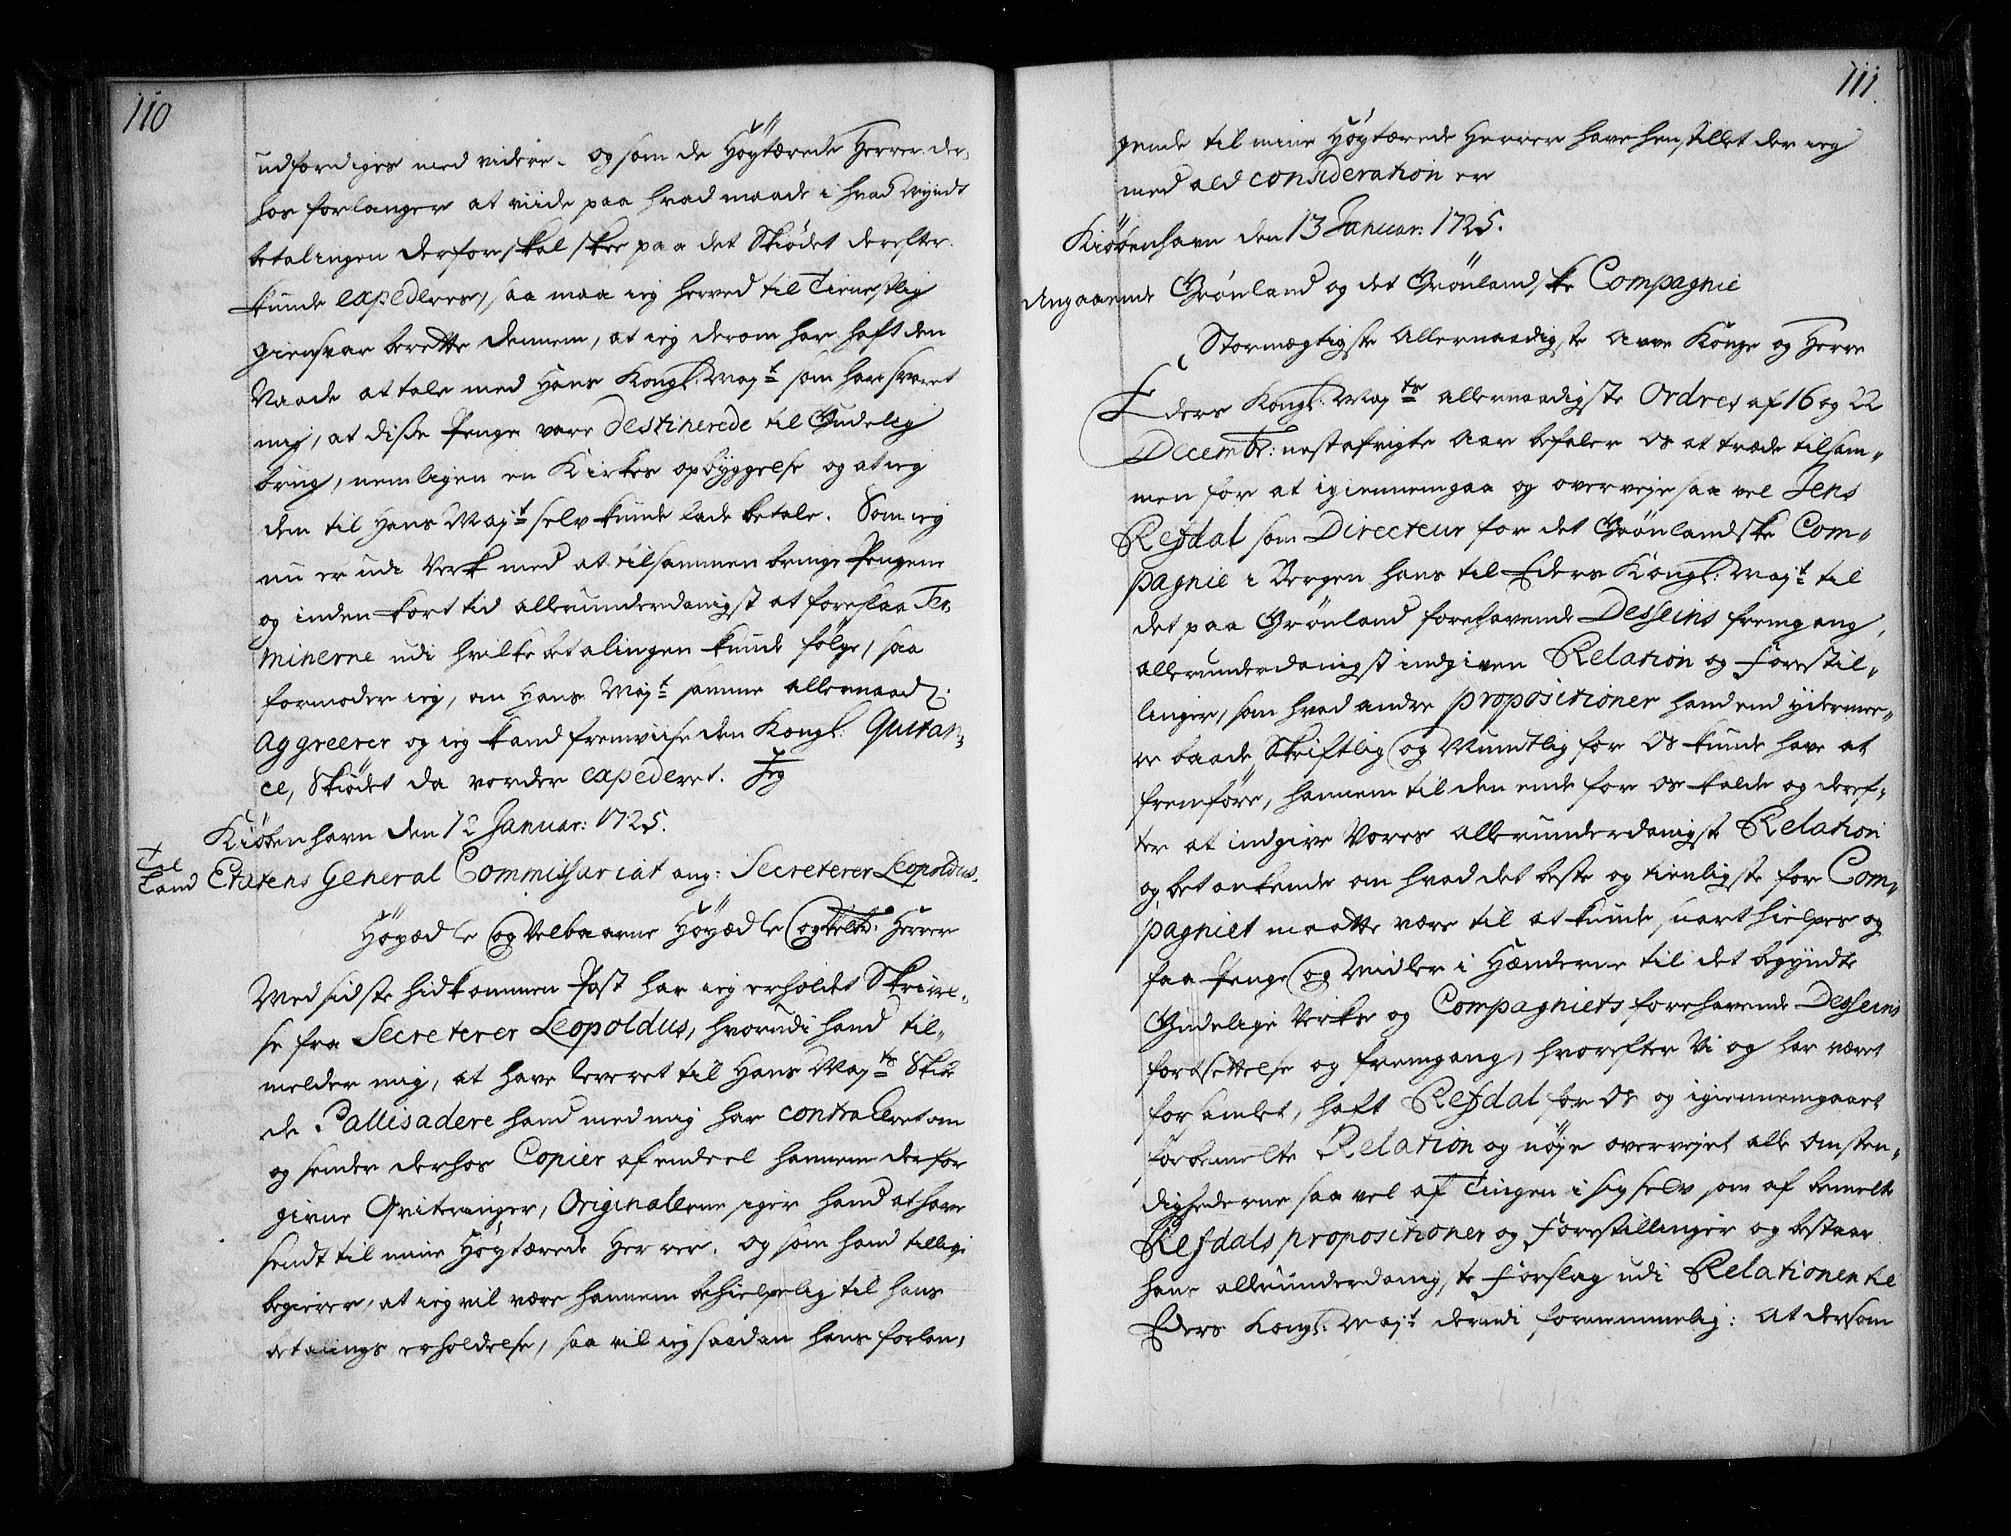 110
udfordiges med videre. og som de Høytærede Herrer der,
hos forlanger at viide paa hvad maade i hvad Myndt
betalingen derfore skal skee paa det Skiødet derefter
kunde expederes, saa maa ieg herved til Tienestlig
giensvar berette dennem, at ieg derom har haft den
Naade at tale med Hans Kongl: Mayt som har svaret
mig, at diße Penge vare destinerede til Gudelig
brug, nemligen en Kirkes opbyggelse og at ieg
dem til Hans Mayt selv kunde lade betale. Som ieg
nu er udi Verk med at tilsammen bringe Pengene
og inden kort tid allerunderdanigst at foreslaa Ter,
minerne udi hvilke betalingen kunde følge, saa
formoder ieg, om Hans Mayt samme allernaad:
aggreerer og ieg kand fremviise den Kongl: Quitan,
ce, Skiødet da vorder expederet. Jeg
Kiøbenhavn den 12 Januar: 1725.
Til
Land Etatens General Commissariat ang: Secreterer Leopoldus.
Høyædle og Velbaarne Høyædle og Velb: Herrer
Med sidste hidkommen Post har ieg erholdet Skrivel,,
se fra Secreterer Leopoldus, hvorudi hand til,,
melder mig, at have leveret til Hans Mayts Skibe
de Pallisadere hand med mig har contraheret om
og sender derhos Copier af endeel hannem derfor
givne Qviteringer, Originalerne siger hand at have
sendt til mine Høytærede Herrer. og som hand tillige
begierer, at ieg vil være hannem behielpelig til hans
betalings erholdelse, saa vil ieg saadan hans forlan,
111.
gende til mine Høytærede Herrer have henstillet der ieg
med ald consideration er
Kiøbenhavn den 13 Januar: 1725.
Angaaende Grønland og det Grønlandske Compagnie
Stormægtigste Allernaadigste Arve Konge og Herre
Eders Kongl: Mayts allernaadigste Ordres af 16 og 22
Decembr: nestafvigte Aar befaler os at træde tilsam,,
men for at igiennemgaa og overveje saa vel Jens
Refdal som Directeur for det Grønlandske Com,,
pagnie i Bergen hans til Eders Kongl: Mayt til
det paa Grønland forehavende Desseins fremgang,
allerunderdanigst indgiven Relation og Forestil,,
linger, som hvad andre propositioner hand end ydermee,,
re baade Skriftlig og Mundtlig for Os kunde have at
fremføre, hannem til den ende for os kalde og deref,,
ter at indgive Vores allerunderdanigst Relation
og betænkende om hvad det beste og tienligste for Com,,
pagniet maatte være til at kunde snart hielpes og
faa Penge og Midler i Hænderne til det begyndte
Gudelige Verks og Compagniets forehavende Desseins
fortsettelse og fremgang, hvorefter Vi og har været
forsamlet, haft Refdal for Os og igiennemgaaet
forbemelte Relation og nøye overvejet alle omsten,
dighederne saa vel af Tingen i sig selv som af bemelte
Refdals propositioner og Forestillinger og bestaar
hans allerunderdanigste Forslag udi Relationen til
Eders Kongl: Mayt derudi fornemmelig: At dersom